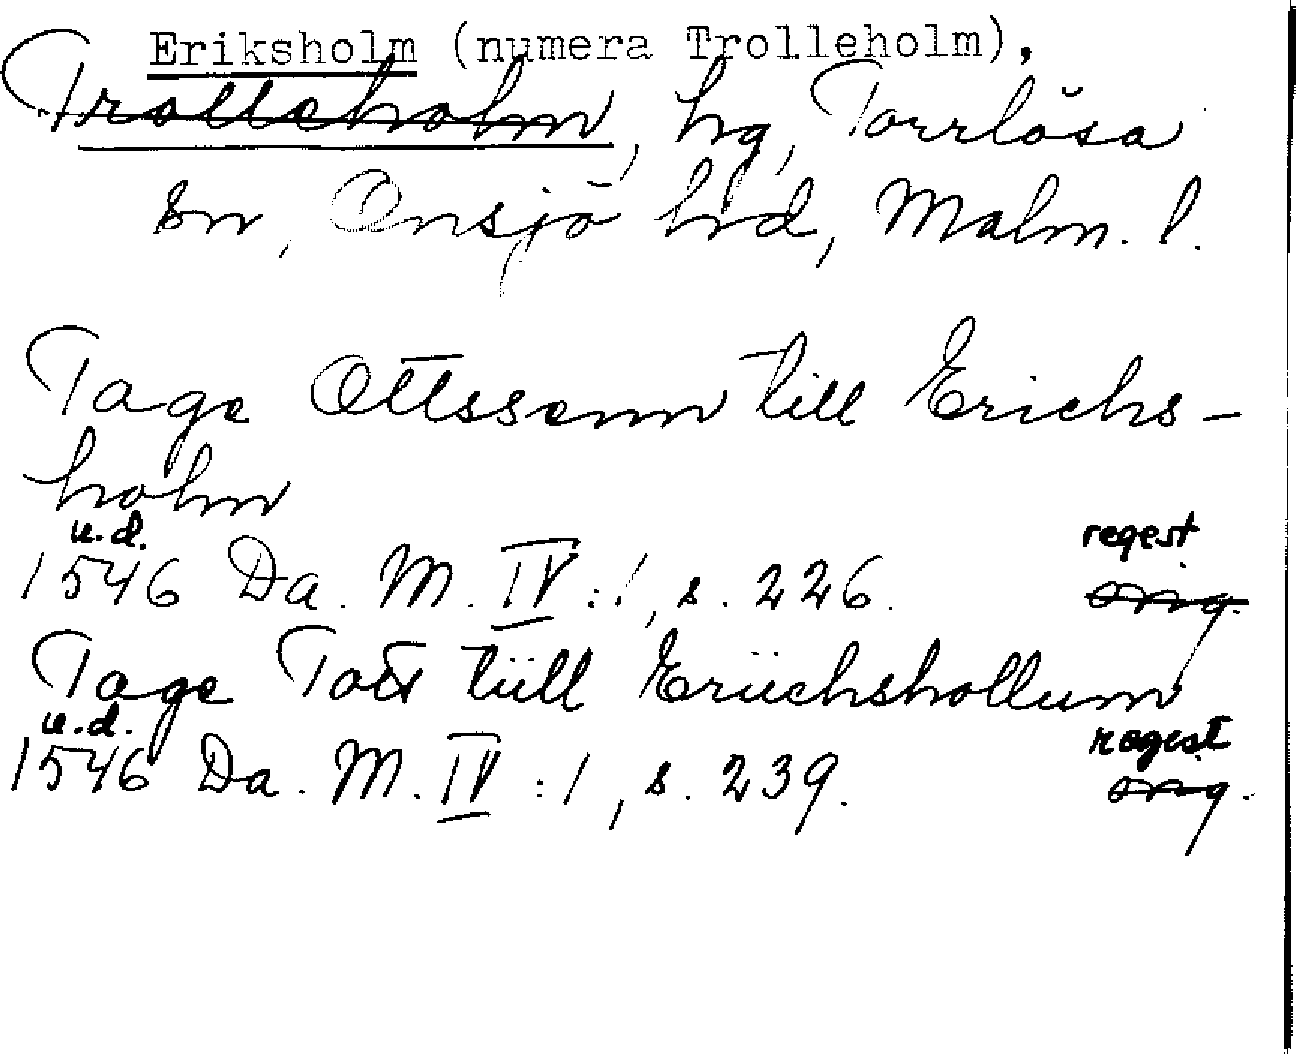 Eriksholm (numera Trolleholm),
Trolleholm, hg, Torrlösa
sn, Onsjö hrd, Malm. l.
Tage Ottssenn till Erichs-
holm
u.d. regest
1546 Da. M. IV:1, s. 226. orig.
Tage Tott tiill Eriichshollum
u.d. regest
1546 Da. M. IV:1, s. 239. orig.